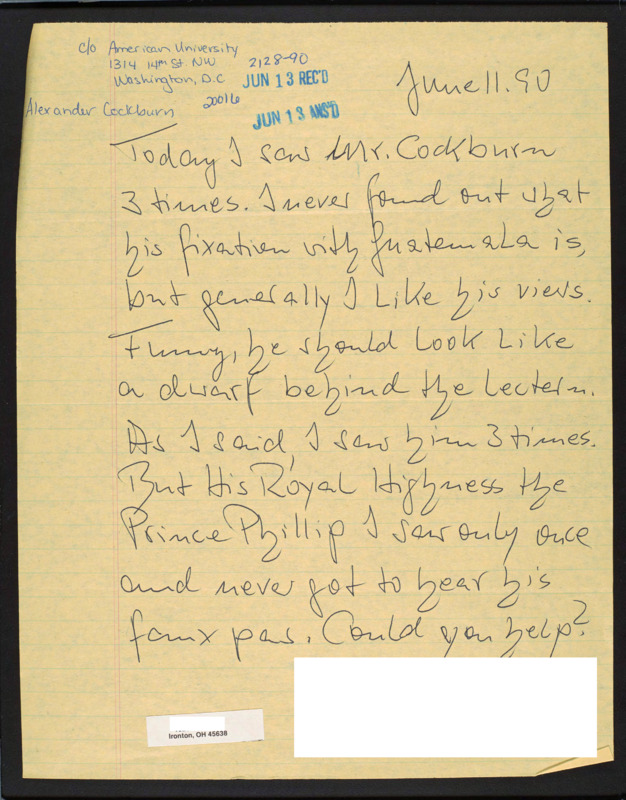 c/o American University
1314 14th St. NW
Washington, D.C
20016
Alexander Cockburn
2128-90
JUN 13 REC'D
JUN 13 ANS'D
June 11.90
Today I saw Mr. Cockburn
3 times. I never found out what
his fixation with Guatemala is,
but generally I like his views.
Funny, he should look like
a dwarf behind the lectern.
As I said, I saw him 3 times.
But His Royal Highness the
Prince Phillip I saw only once
and never got to hear his
faux pas. Could you help?
Ironton, OH 45638